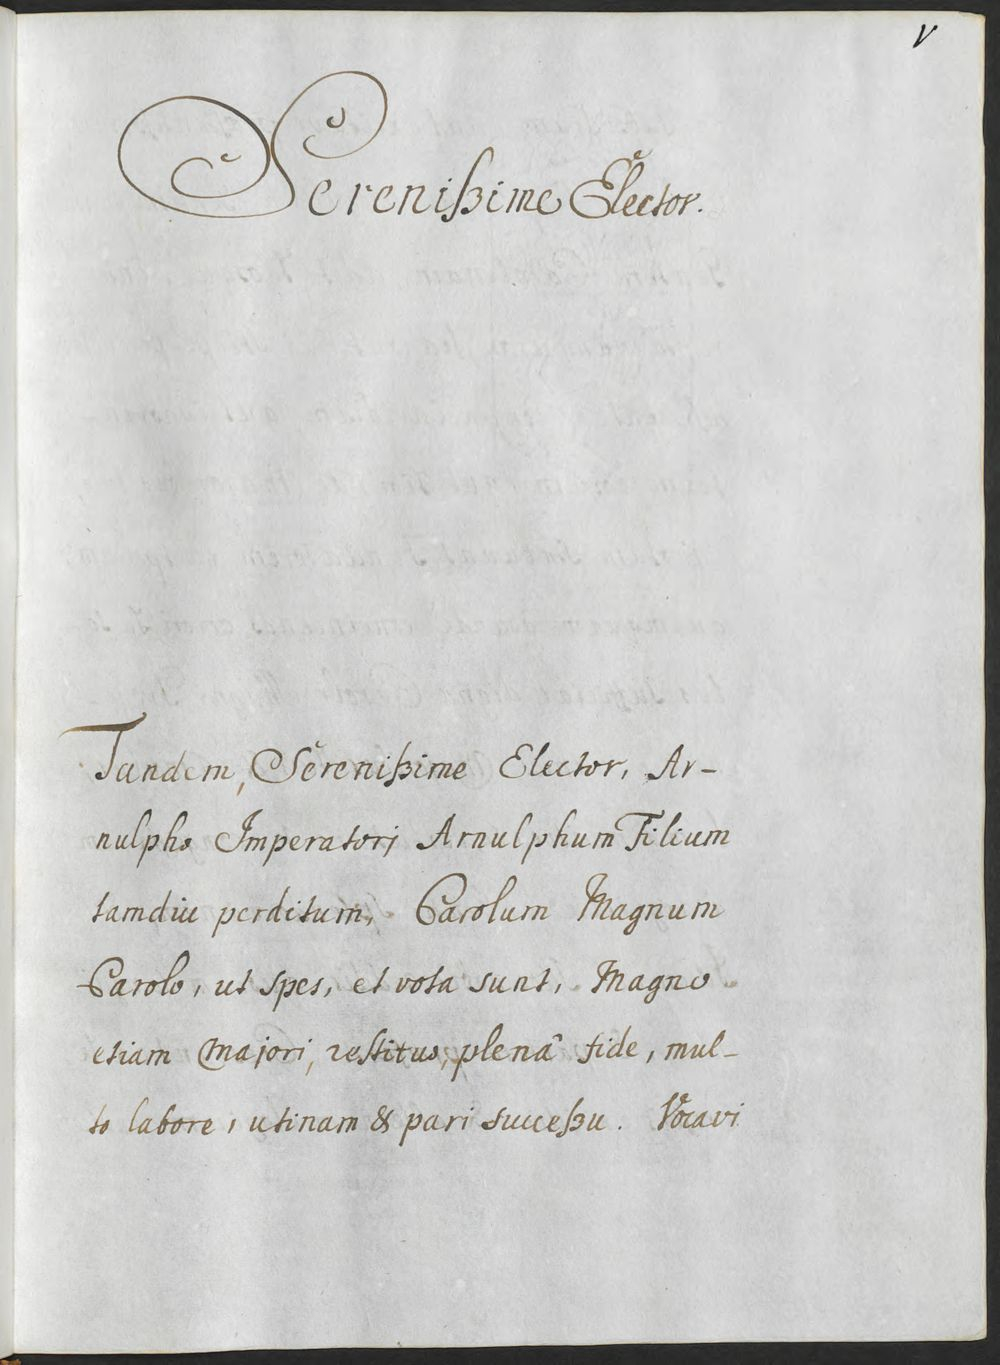 V
Sereniſzime Elector.
Tandem, Sereniſzime Elector, Ar-
nulpho Imperatori Arnulphum Filium
tamdiu perditum, Carolum Magnum
Carolo, ut spes, et vota sunt, Magno
etiam Majori, reſtituo, plenâ fide, mul-
to labore, utinam & pari succeſzu. Vocavi